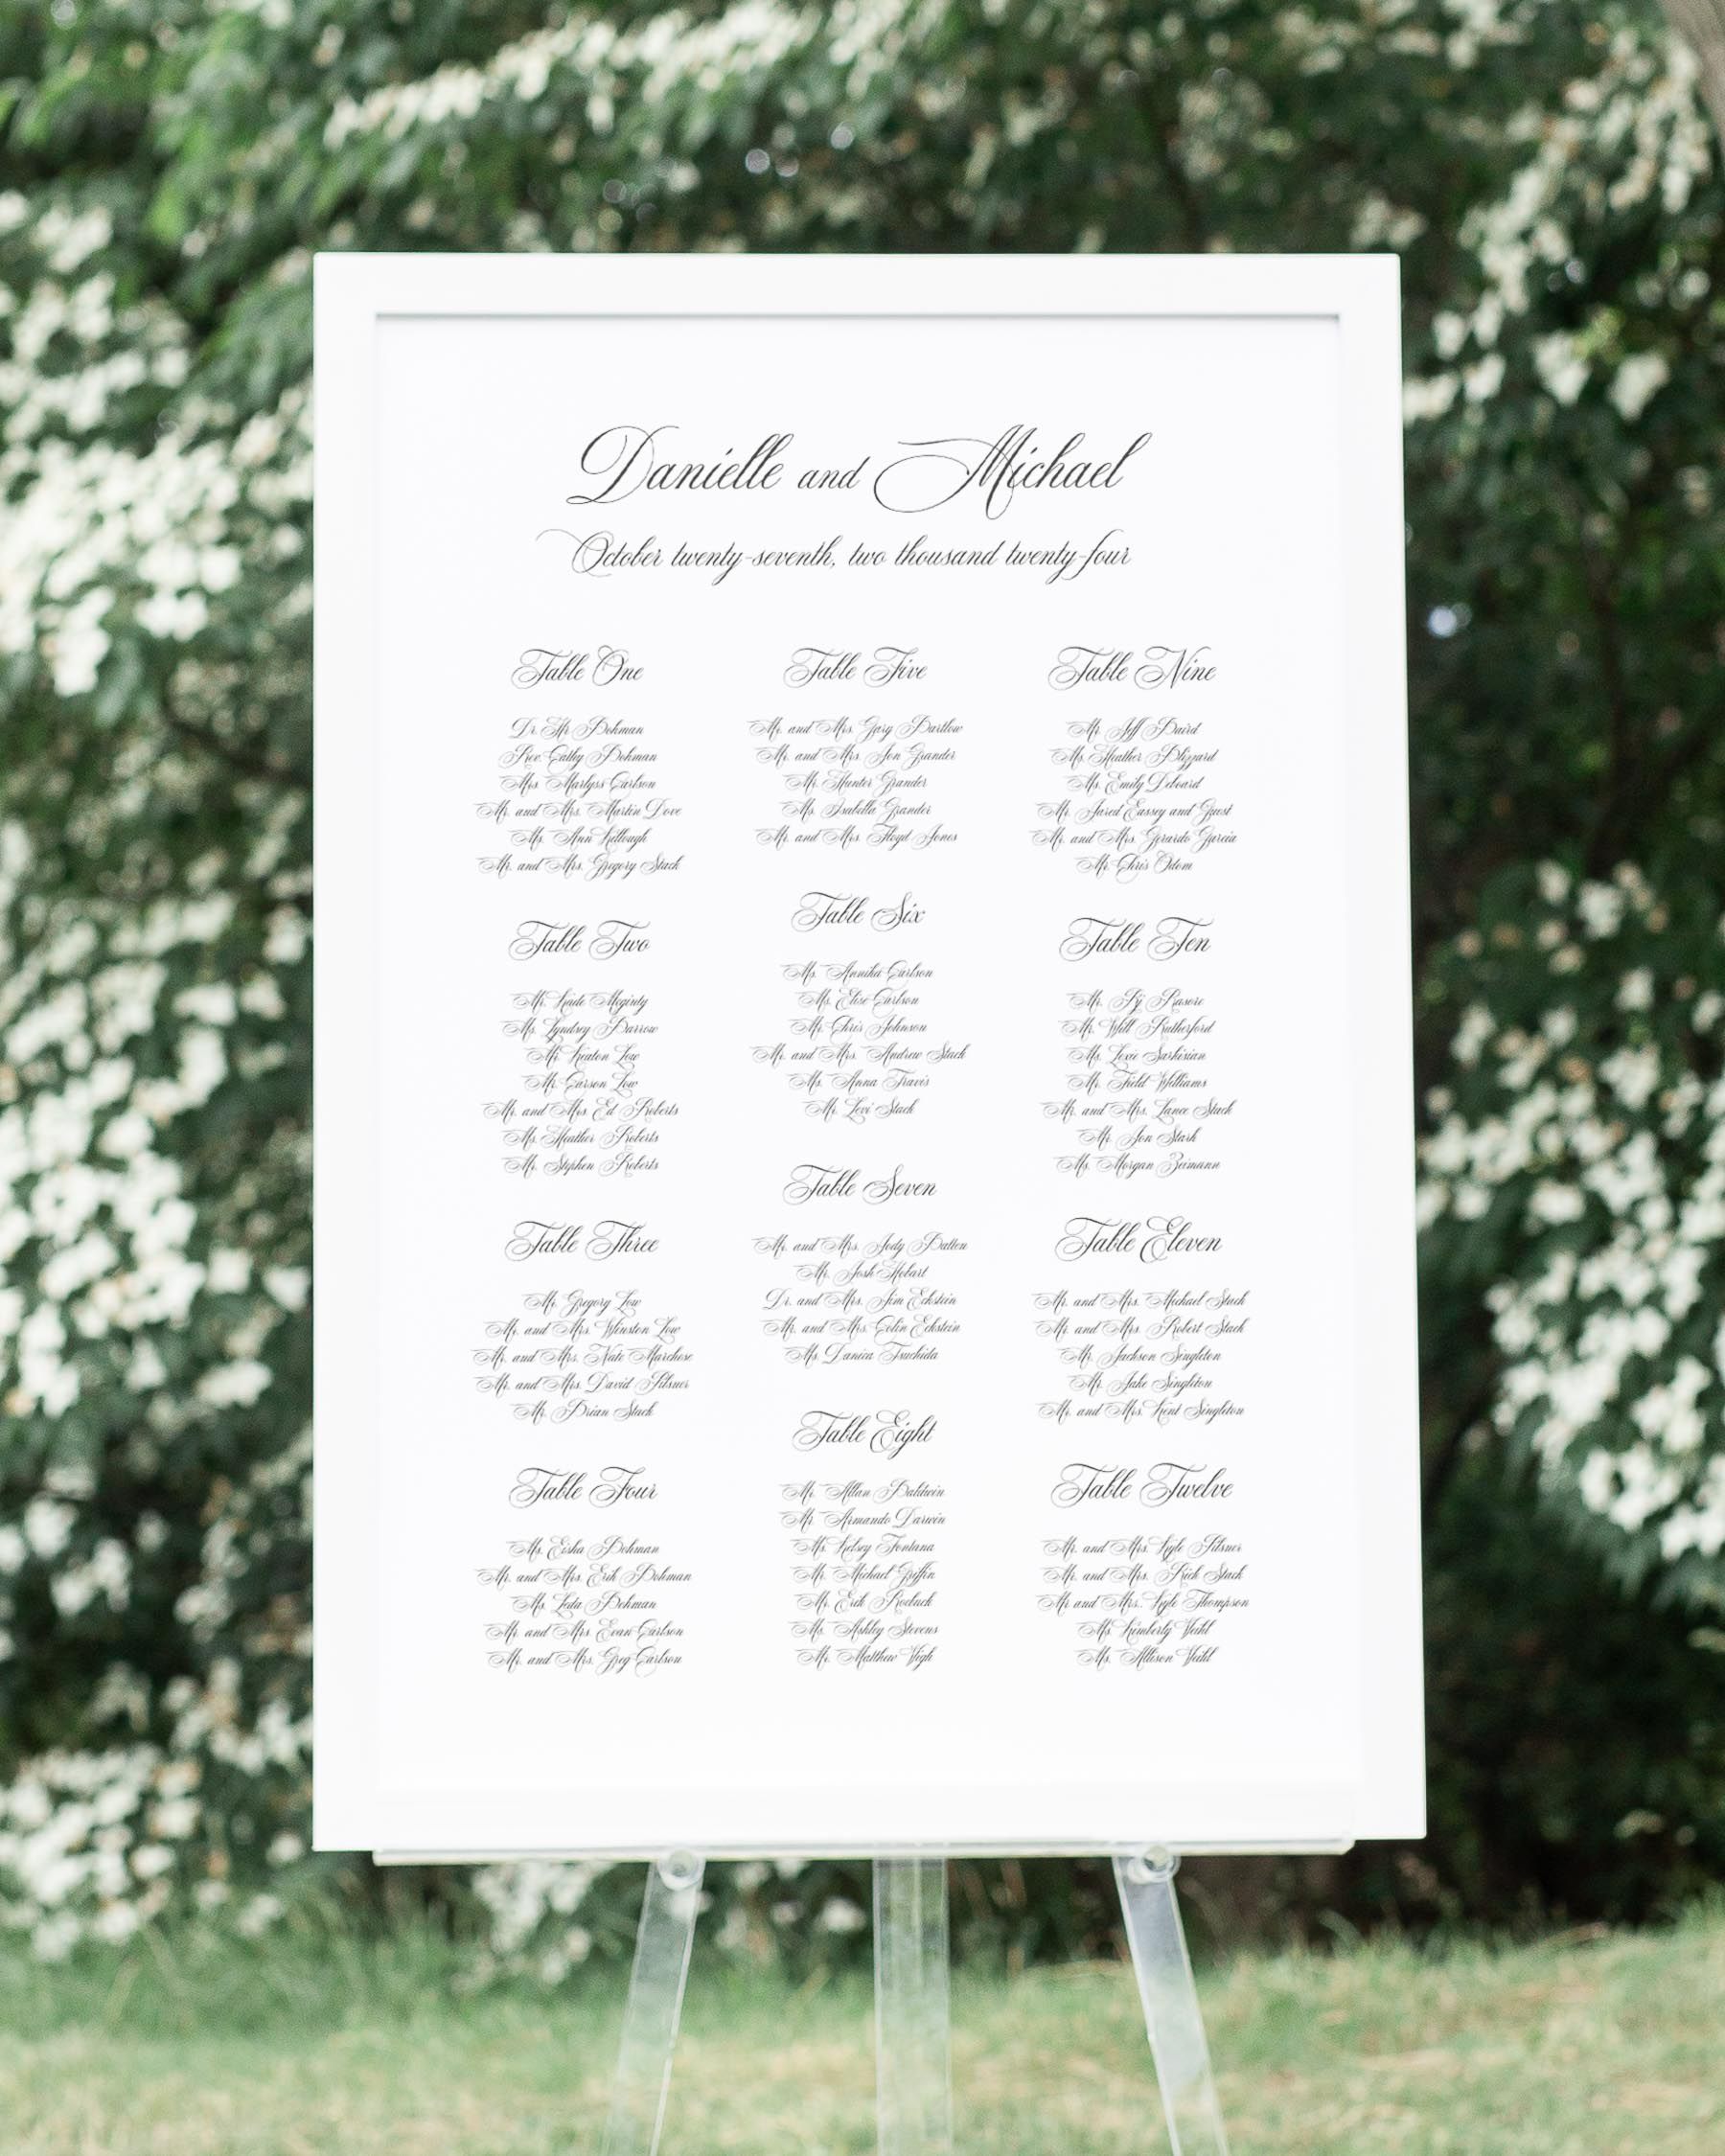 Danielle and Michael
October twenty-seventh, two thousand twenty-four
Table One
Dr. Bohman
Rev. Cathy Bohman
Mrs. Marlyss Carlson
Mr. and Mrs. Martin Dove
Ms. Ann Killough
Mr. and Mrs. Gregory Stack
Table Two
Mr. Kade Mcginty
Ms. Lyndsey Barrow
Mr. Keaton Low
Mr. Carson Low
Mr. and Mrs. Ed Roberts
Ms. Heather Roberts
Mr. Stephen Roberts
Table Three
Mr. Gregory Low
Mr. and Mrs. Winston Low
Mr. and Mrs. Nate Marchese
Mr. and Mrs. David Pilsner
Mr. Brian Stack
Table Four
Ms. Eisha Bohman
Mr. and Mrs. Erik Bohman
Ms. Leda Bohman
Mr. and Mrs. Evan Carlson
Mr. and Mrs. Greg Carlson
Table Five
Mr. and Mrs. Gary Bartlow
Mr. and Mrs. Jon Grander
Mr. Hunter Grander
Ms. Isabella Grander
Mr. and Mrs. Floyd Jones
Table Six
Ms. Annika Carlson
Ms. Elise Carlson
Mr. Chris Johnson
Mr. and Mrs. Andrew Stack
Ms. Anna Travis
Mr. Levi Stack
Table Seven
Mr. and Mrs. Jody Batten
Mr. Josh Hobart
Dr. and Mrs. Jim Eckstein
Mr. and Mrs. Colin Eckstein
Ms. Danica Tsuchida
Table Eight
Mr. Allan Baldwin
Mr. Armando Darwin
Ms. Kelsey Fontana
Mr. Michael Griffin
Mr. Erik Roduck
Ms. Ashley Stevens
Mr. Matthew Vigh
Table Nine
Mr. Jeff Baird
Ms. Heather Blizzard
Ms. Emily Deboard
Mr. Jared Eassey and Guest
Mr. and Mrs. Gerardo Garcia
Mr. Chris Odom
Table Ten
Mr. Pj Rasore
Mr. Will Rutherford
Ms. Lexie Sarkisian
Mr. Field Williams
Mr. and Mrs. Lance Stack
Mr. Jon Stark
Ms. Morgan Zeimann
Table Eleven
Mr. and Mrs. Michael Stack
Mr. and Mrs. Robert Stack
Mr. Jackson Singleton
Mr. Jake Singleton
Mr. and Mrs. Kent Singleton
Table Twelve
Mr. and Mrs. Kyle Pilsner
Mr. and Mrs. Rick Stack
Mr. and Mrs. Kyle Thompson
Ms. Kimberly Veihl
Ms. Allison Veihl